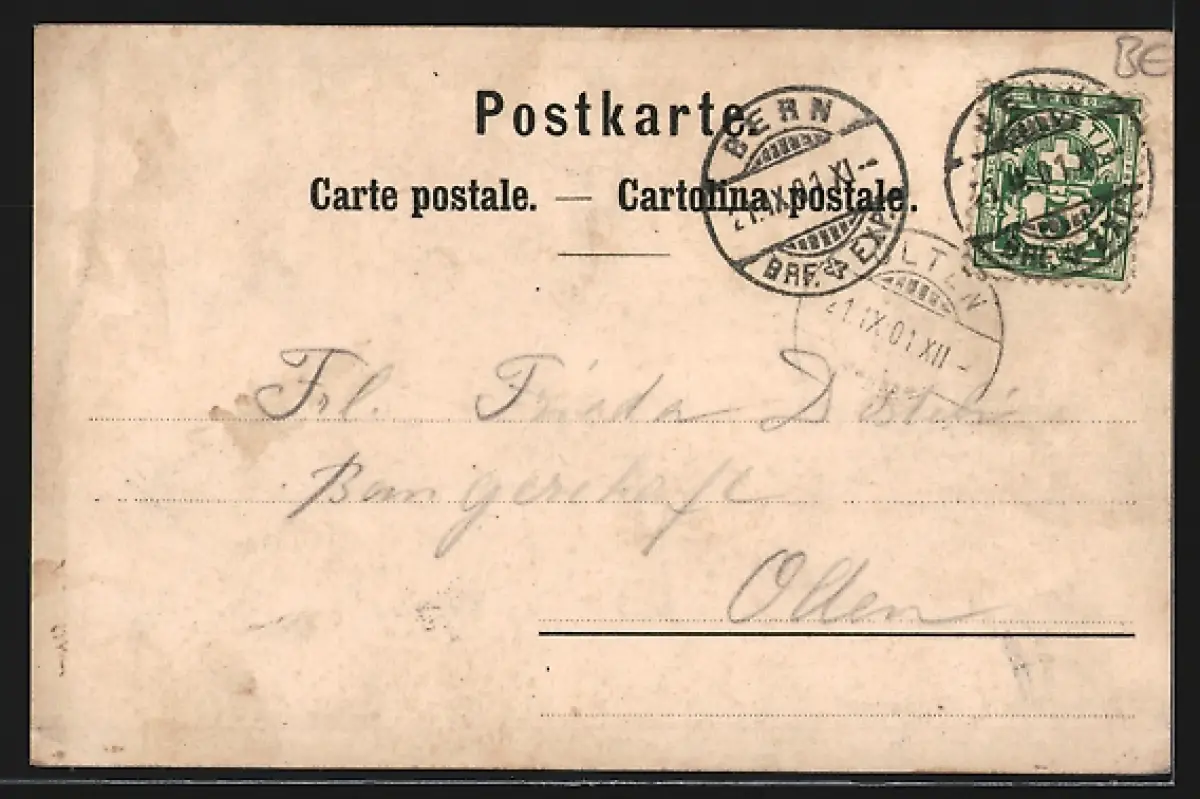 BE
Postkarte.
Carte postale. — Cartolina postale.
BERN
21.IX.01.XI-
BRF. EXP.
HELVETIA
BRF. EXP.
OLTEN
21.IX.01.XII-
Frl. Frieda
Olten